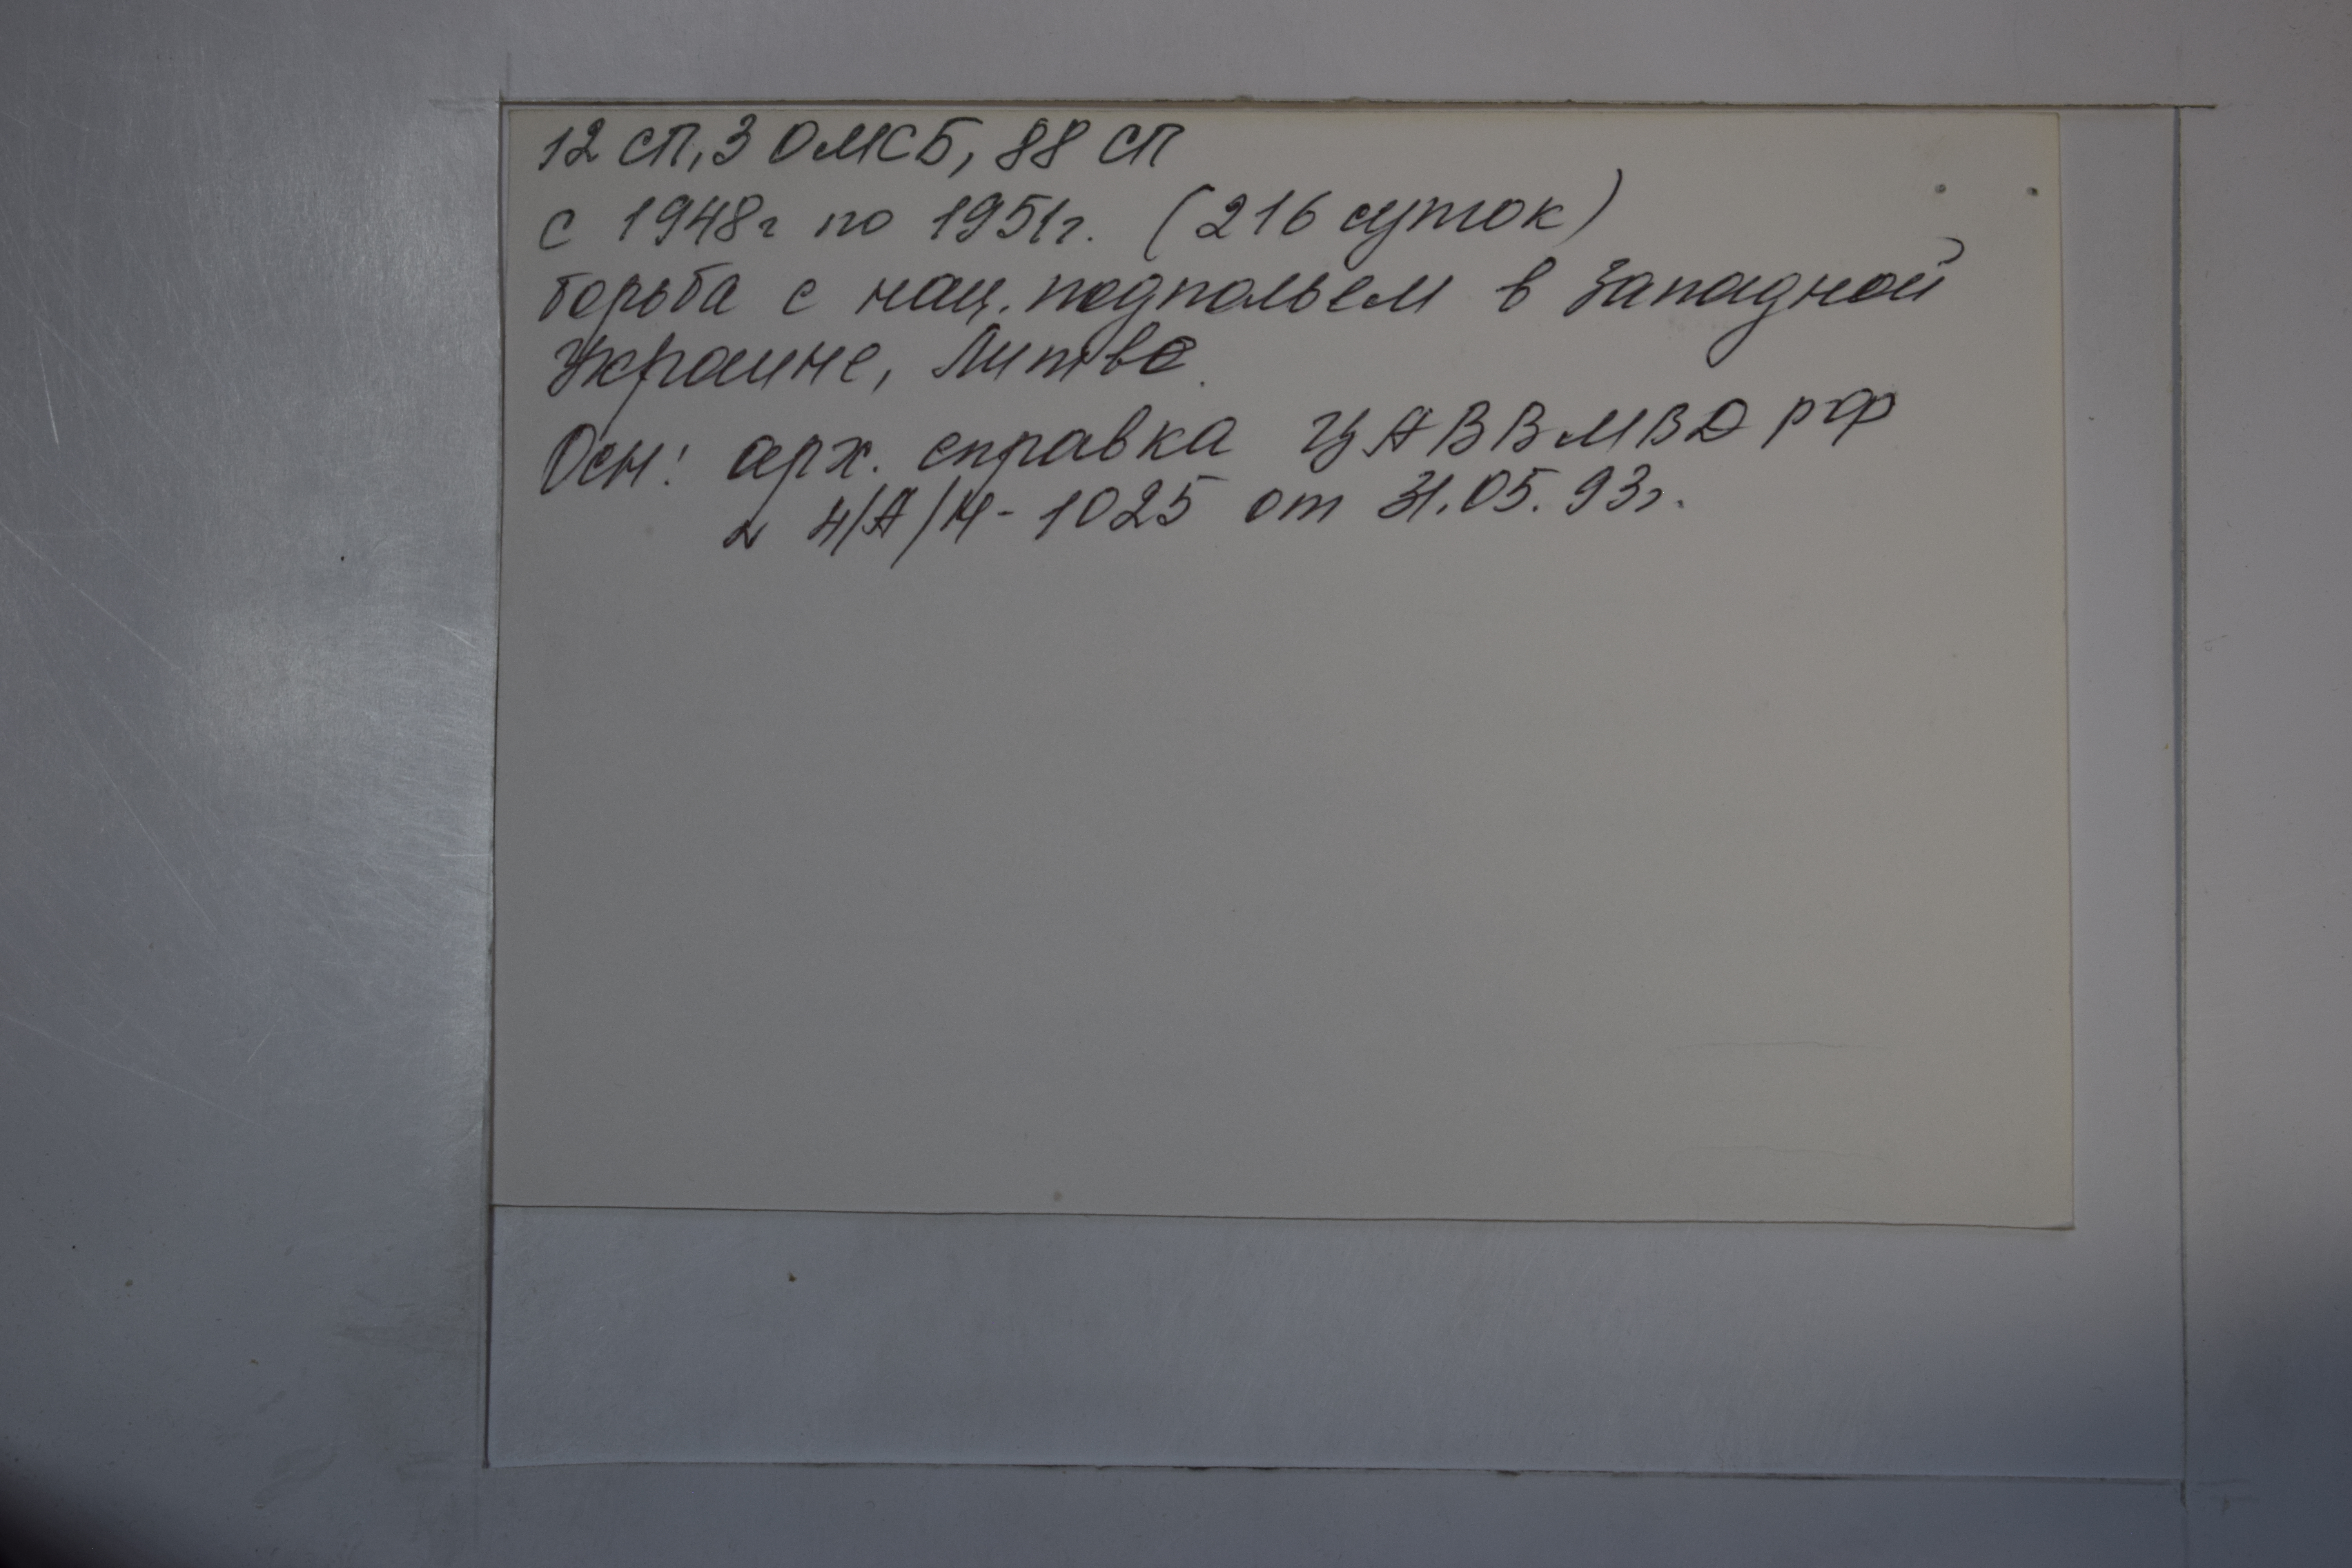 12 СП, 3 ОМСБ, 88 СП
с 1948г по 1951г. (216 суток)
борьба с нац. подпольем в Западной
Украине, Литве.
Осн: арх. справка ЦАВВМВД РФ
N 4/А/Н-1025 от 31.05.93г.